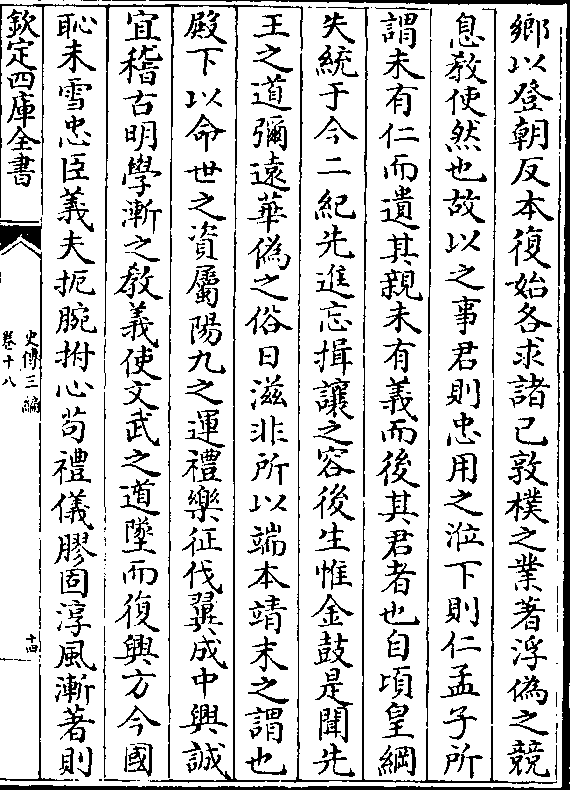 鄉以登朝反本復始各求諸已敦樸之業著浮偽之競
息教使然也故以之事君則忠用之涖下則仁孟子所
謂未有仁而遺其親未有義而後其君者也自頃皇綱
失統于今二紀先進忘揖讓之容後生惟金鼓是聞先
王之道彌遠華偽之俗日滋非所以端本靖末之謂也
殿下以命世之資屬陽九之運禮樂征伐翼成中興誠
宜稽古明學漸之教義使文武之道墜而復興方今國
恥未雪忠臣義夫扼腕拊心苟禮儀膠固淳風漸著則
欽定四庫全書
史傳三編
卷十八
十四